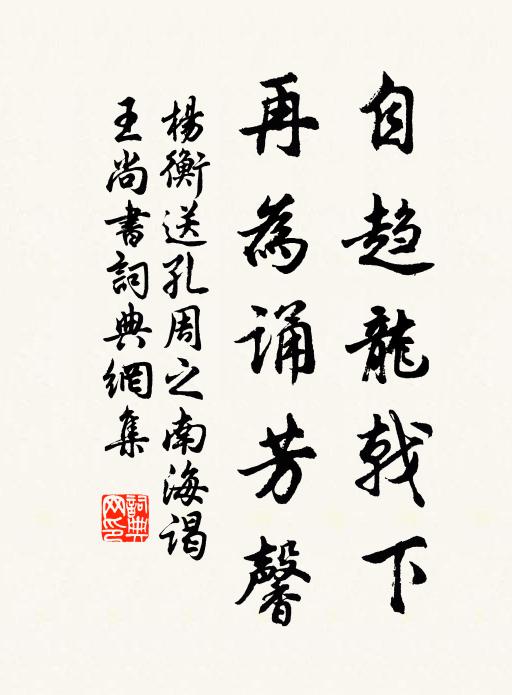 自趋龍戟下
再為誦芳馨
楊衡送孔周之南海谒
王尚書詞典網集
詞典网印